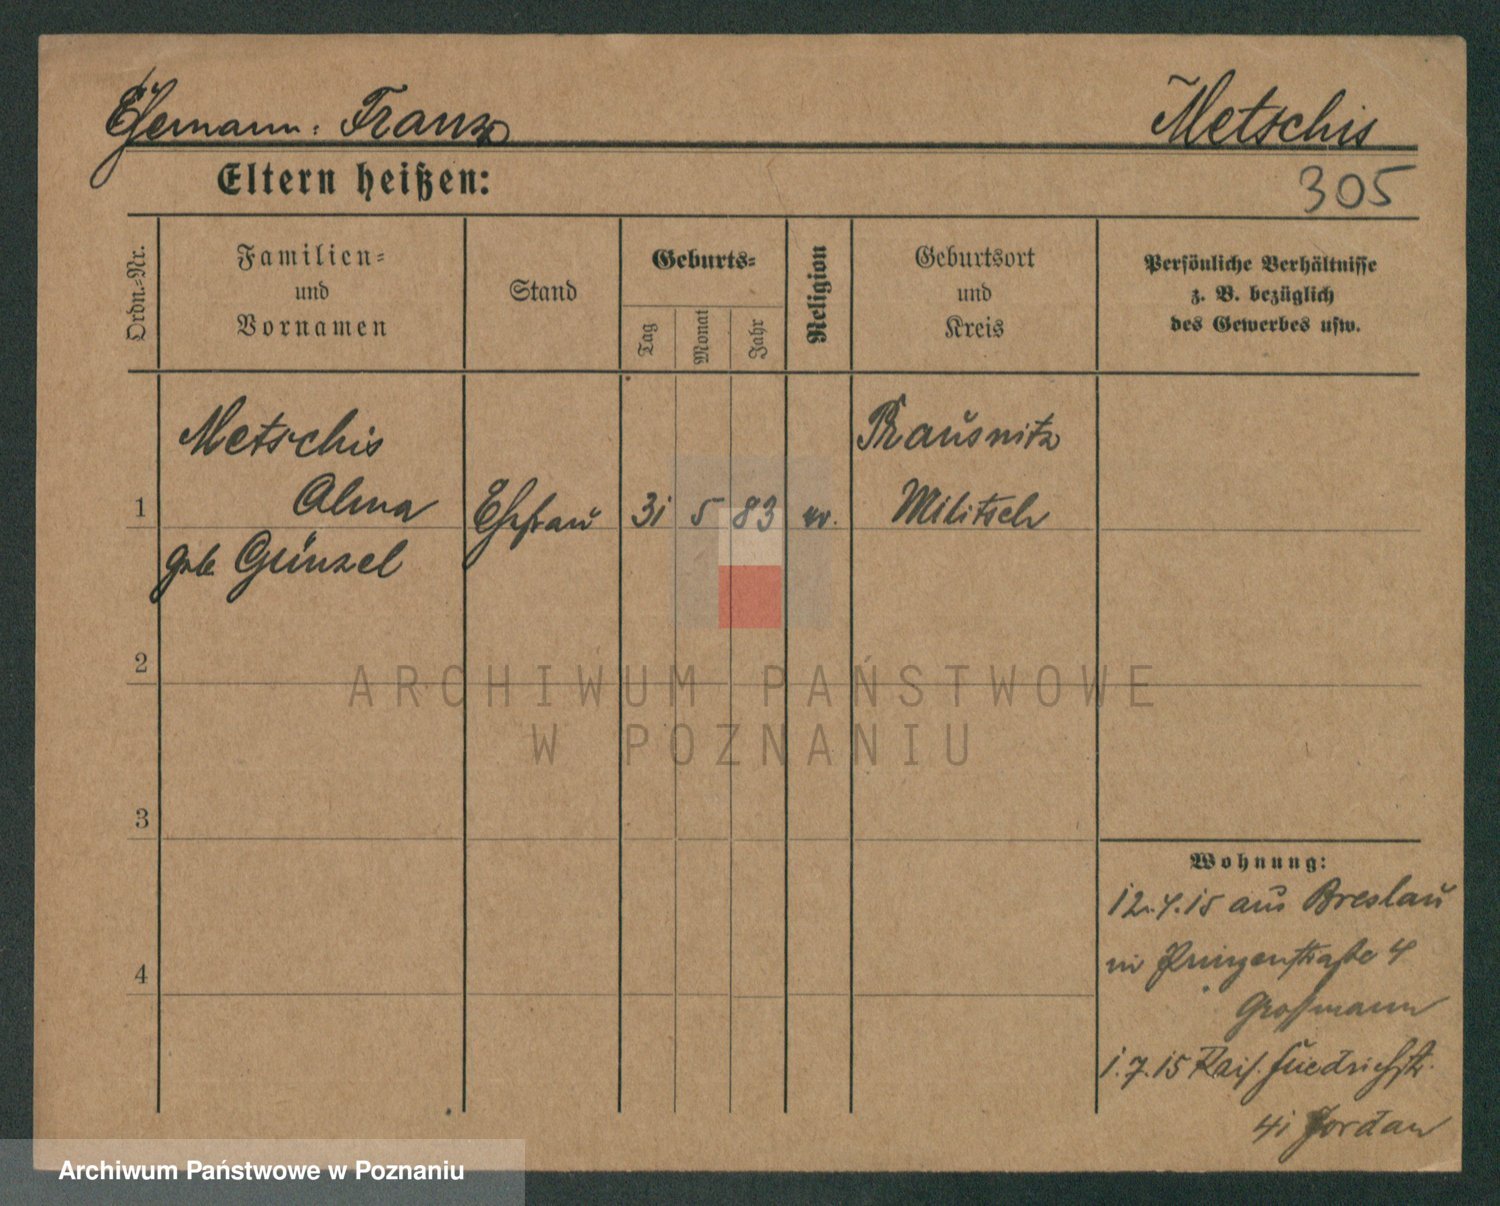 Ehemann: Franz
Metschis
Eltern heißen:
305
Ordn.-Nr.
Familien-
und
Vornamen
Stand
Geburts-
Tag
Monat
Jahr
Religion
Geburtsort
und
Kreis
Persönliche Verhältnisse
z. B. bezüglich
des Gewerbes usw.
Metschis
Prausnitz
1 Alma Ehefrau 31 5 83 ev. Militsch
geb Günzel
2
ARCHIWUM PAŃSTWOWE
W POZNANIU
3
Wohnung:
12.4.15 aus Breslau
in Prinzenstraße 4
Großmann
4
1.7.15 Kais. Friedrichstr.
41 Jordan
Archiwum Państwowe w Poznaniu